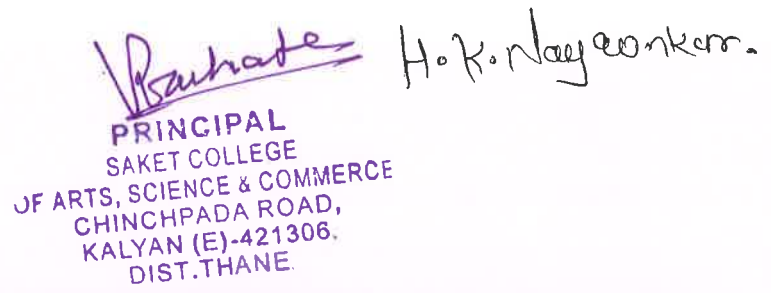 H. K. Naygaonkar.
PRINCIPAL
SAKET COLLEGE
OF ARTS, SCIENCE & COMMERCE
CHINCHPADA ROAD,
KALYAN (E)-421306.
DIST.THANE.